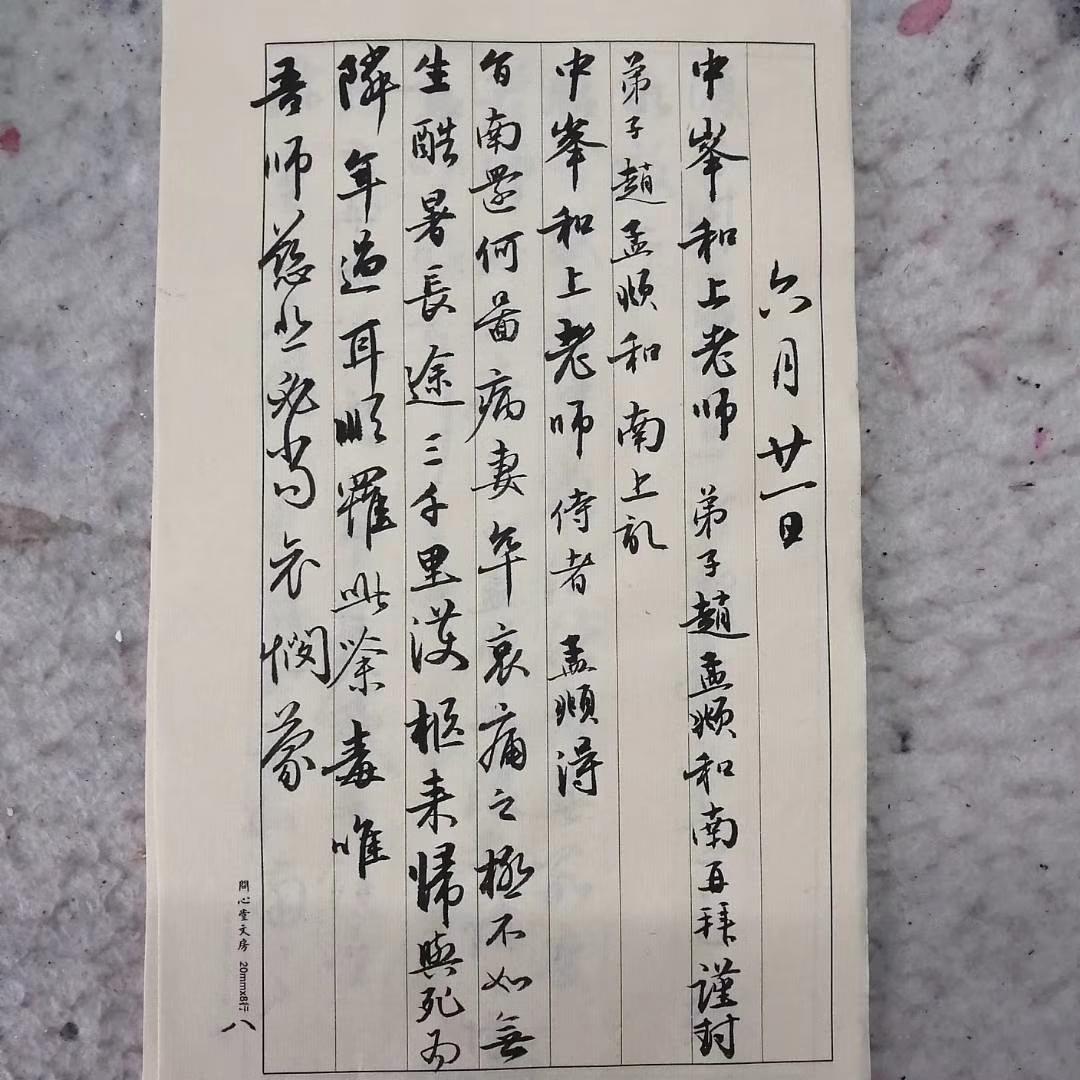 六月廿一日
中峯和上老师 弟子趙孟頫和南再拜謹封
弟子趙孟頫和南上記
中峯和上老师 侍者 孟頫得
旨南還何圖病妻卒哀痛之極不如無
生酷暑長途三千里護柩来歸與死為
隣年過耳順罹此荼毒唯
吾师慈悲必當哀憫蒙
問心堂文房 20mmx8行
八